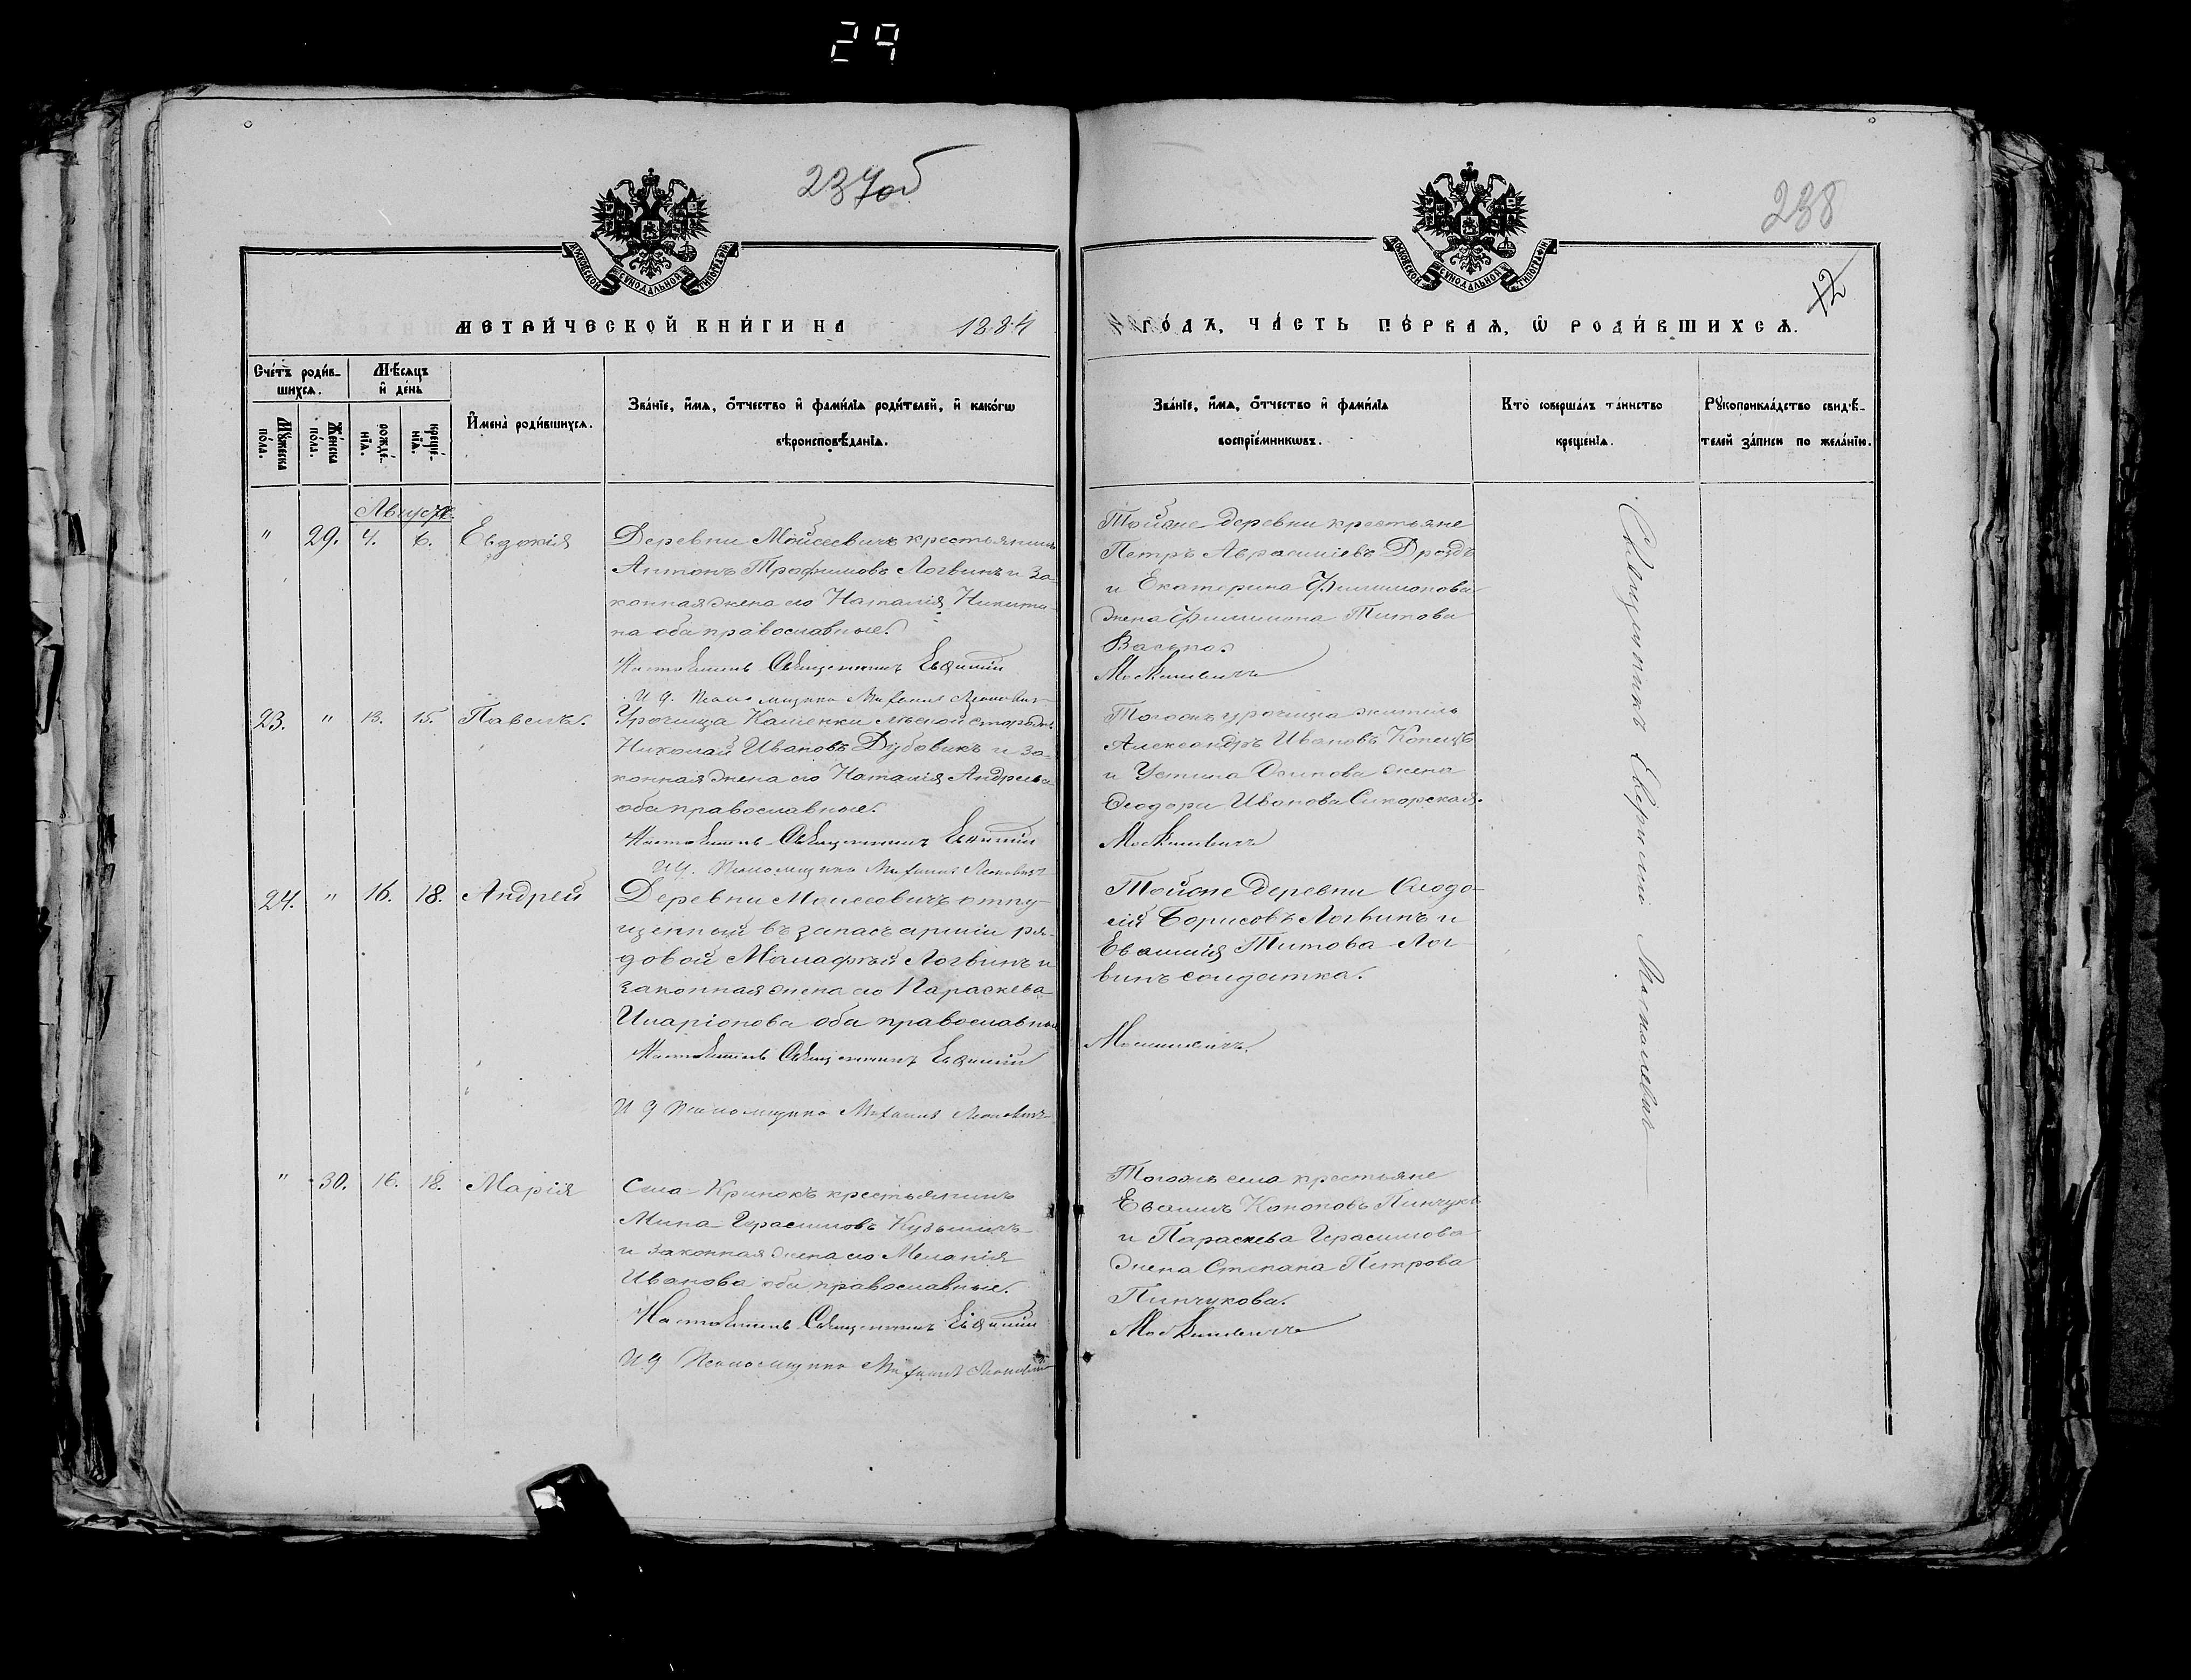 29
237об
238
12
МОСКОВСКОЙ СѴНОДАЛЬНОЙ ТИПОГРАФІИ
МОСКОВСКОЙ СѴНОДАЛЬНОЙ ТИПОГРАФІИ
МЕТРИ́ЧЕСКОЙ КНИ́ГИ НА 1884
ГО́ДЪ, ЧА́СТЬ ПЕ́РВАѦ, Ѡ РОДИ́ВШИХСѦ.
Сче́тъ роди́в-
шихсѧ.
Мꙋ́жеска по́ла.
Же́нска по́ла.
Мѣ́сѧцъ
и҆ де́нь
рожде́-
нїѧ.
креще́-
нїѧ.
И҆мена̀ роди́вшихсѧ.
Зва́нїе, и҆́мѧ, ѻ҆́тчество и҆ фами́лїѧ роди́телей, и҆ како́гѡ
вѣроисповѣ́данїѧ.
Зва́нїе, и҆́мѧ, ѻ҆́тчество и҆ фами́лїѧ
воспрїе́мникѡвъ.
Кто̀ соверша́лъ та́инство
креще́нїѧ.
Рꙋкоприкла́дство свидѣ́-
телей за́писи по жела́нїю.
Августъ.
" 29. 4. 6. Евдокія
Деревни Мойсеевичъ крестьянинъ
Антонъ Трофимовъ Логвинъ и за-
конная жена его Наталія Никити-
на оба православные.
Настоятель Священникъ Евфимій
И д. Псаломщика Михаилъ
Тойже деревни крестьяне
Петръ Аврамiевъ Дроздъ
и Екатерина Филимонова
жена Филимона Титова
Васько.
Мацкевичъ
23. " 13. 15. Павелъ.
Урочища Каменки лѣсной сторожъ
Николай Ивановъ Дубовикъ и за-
конная жена его Наталія Андреева
оба православные.
Настоятель Священникъ Евфимій
И д. Псаломщика Михаилъ
Тогожъ урочища житель
Александръ Ивановъ Копецъ
и Устина Осипова жена
Ѳеодора Иванова Сикорская.
24. " 16. 18. Андрей
Деревни Моисеевичъ отпу-
щенный въ запасъ арміи ря-
довой Логвинъ и
законная жена его Параскева
Иларіонова оба православные
Настоятель Священникъ Евфимій
И д Псаломщика Михаилъ
Тойже деревни Ѳеодо-
сій Борисовъ Логвинъ и
Евфимія Титова Лог-
винъ солдатка.
" 30. 16. 18. Марія
Села Кринокъ крестьянинъ
Мина Герасимовъ Кузьмичъ
и законная жена его Меланія
Иванова оба православные.
Настоятель Священникъ Евфимій
И д Псаломщика Михаилъ
Тогожъ села крестьяне
Кононовъ Пинчукъ
и Параскева Герасимова
жена Степана Петрова
Пинчукова.
Священникъ